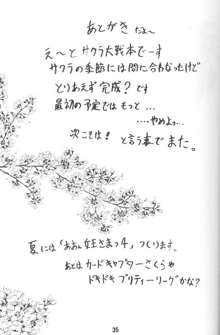 あとがき だよ〜
え〜と サクラ大戦本でーす
サクラの季節には間に合わなったけど
とりあえず完成？です
最初の予定では もっと …
… …やめよっ
次こそは！ と言う事で また。
夏には「ああん女王さまっ4」つくります。
あとは カードキャプターさくらや
ドキドキ プリティーリーグかな？
35